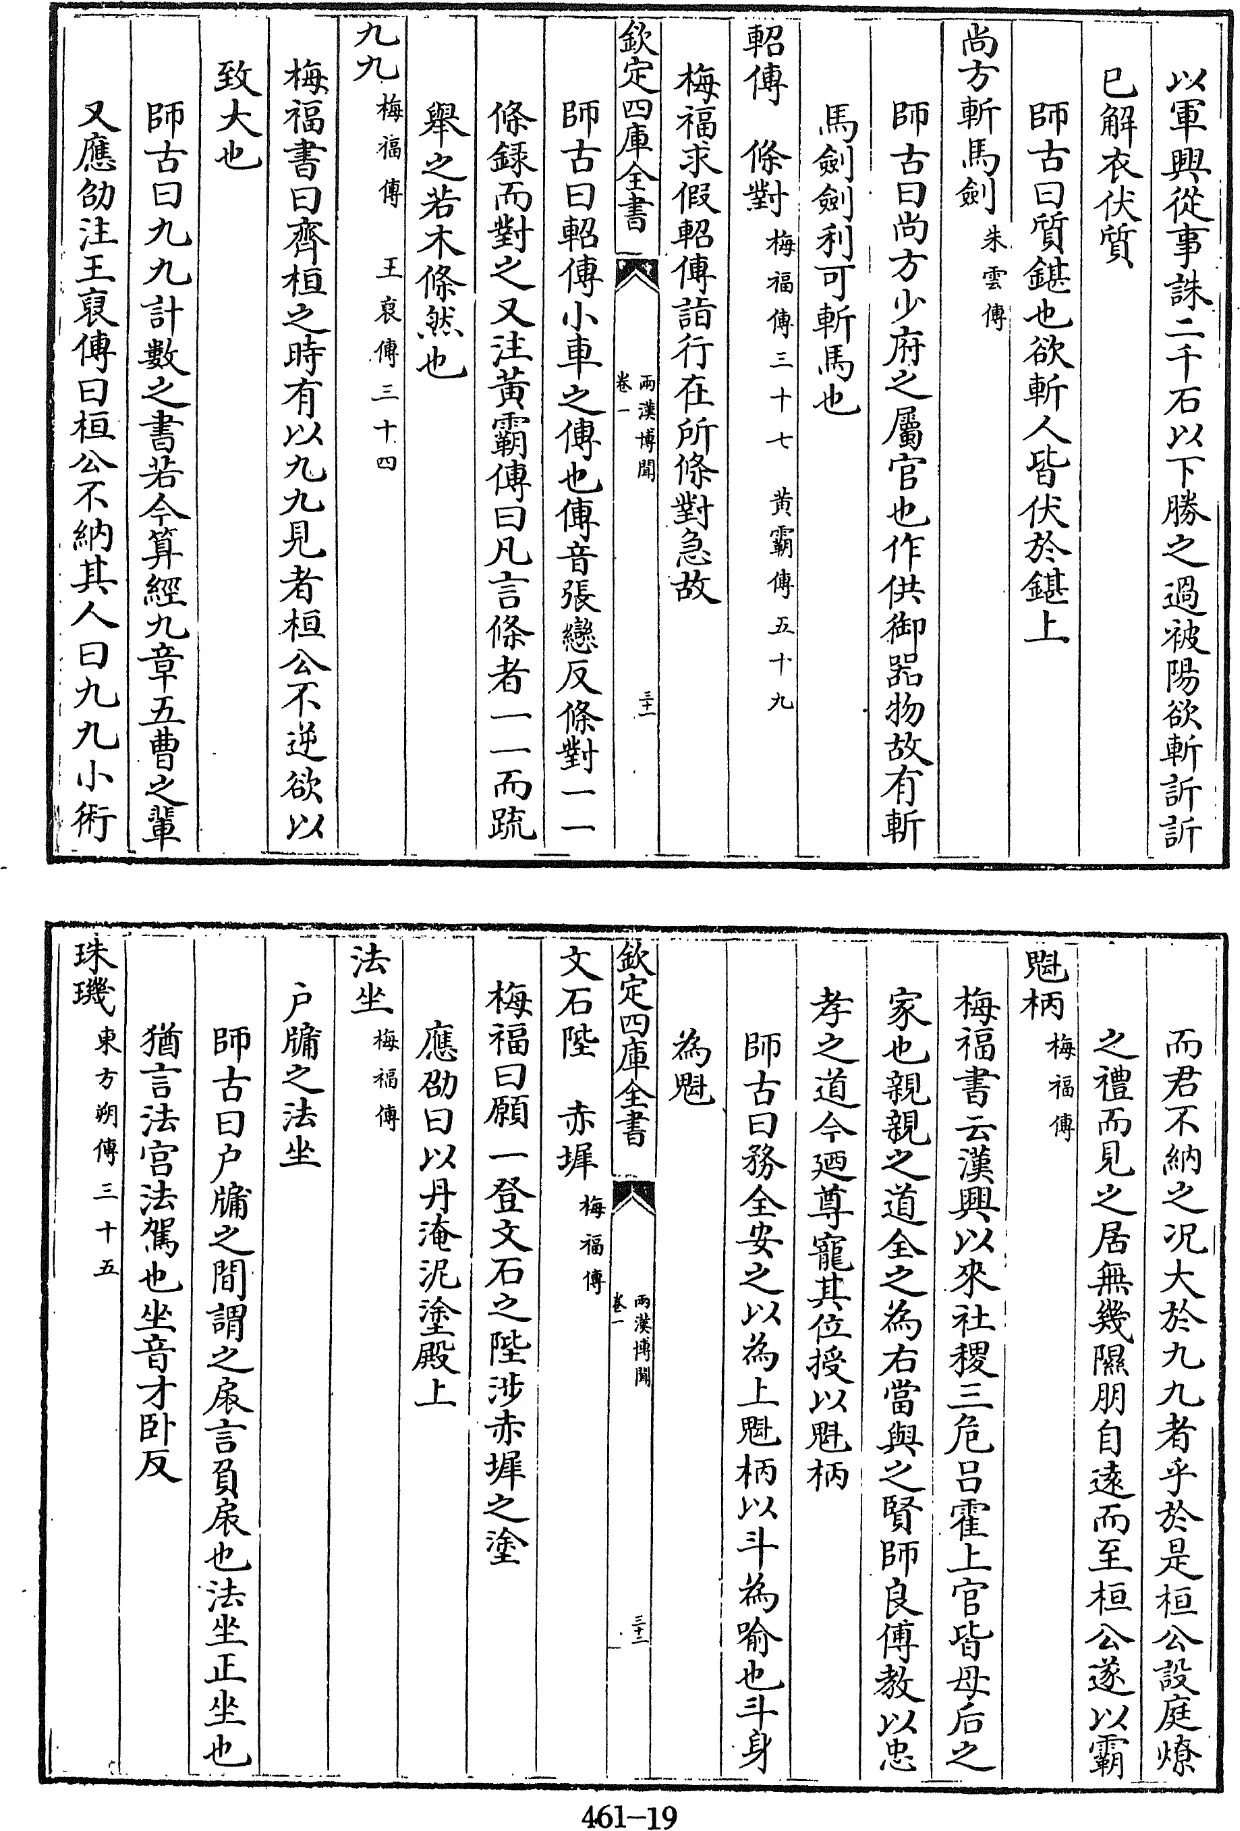 以軍興從事誅二千石以下勝之過被陽欲斬訢訢
已解衣伏質
師古曰質鍖也欲斬人皆伏於鍖上
尚方斬馬劒 朱雲傳
師古曰尚方少府之屬官也作供御器物故有斬
馬劒劒利可斬馬也
軺傳 條對 梅福傳三十七 黃霸傳五十九
梅福求假軺傳詣行在所條對急故
欽定四庫全書 兩漢博聞 卷一 三十一
師古曰軺傳小車之傳也傳音張戀反條對一一
條録而對之又注黃霸傳曰凡言條者一一而疏
舉之若木條然也
九九 梅福傳 王裒傳三十四
梅福書曰齊桓之時有以九九見者桓公不逆欲以
致大也
師古曰九九計數之書若今算經九章五曹之輩
又應劭注王裒傳曰桓公不納其人曰九九小術
而君不納之况大於九九者乎於是桓公設庭燎
之禮而見之居無幾隰朋自遠而至桓公遂以霸
魁柄 梅福傳
梅福書云漢興以來社稷三危呂霍上官皆母后之
家也親親之道全之為右當與之賢師良傅教以忠
孝之道今廼尊寵其位授以魁柄
師古曰務全安之以為上魁柄以斗為喻也斗身
為魁
欽定四庫全書 兩漢博聞 卷一 三十二
文石陛 赤墀 梅福傳
梅福曰願一登文石之陛涉赤墀之塗
應劭曰以丹淹泥塗殿上
法坐 梅福傳
户牖之法坐
師古曰户牖之間謂之扆言負扆也法坐正坐也
猶言法宫法駕也坐音才卧反
珠璣 東方朔傳三十五
461-19